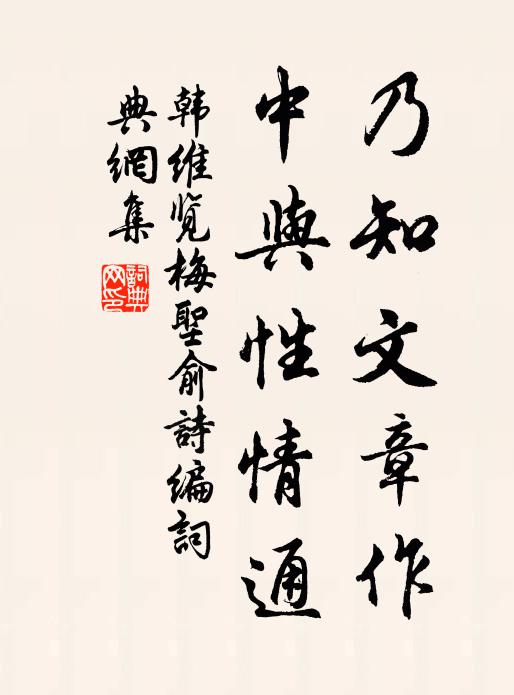 乃知文章作
中與性情通
韩維览梅聖俞詩编詞
典網集
詞典网印